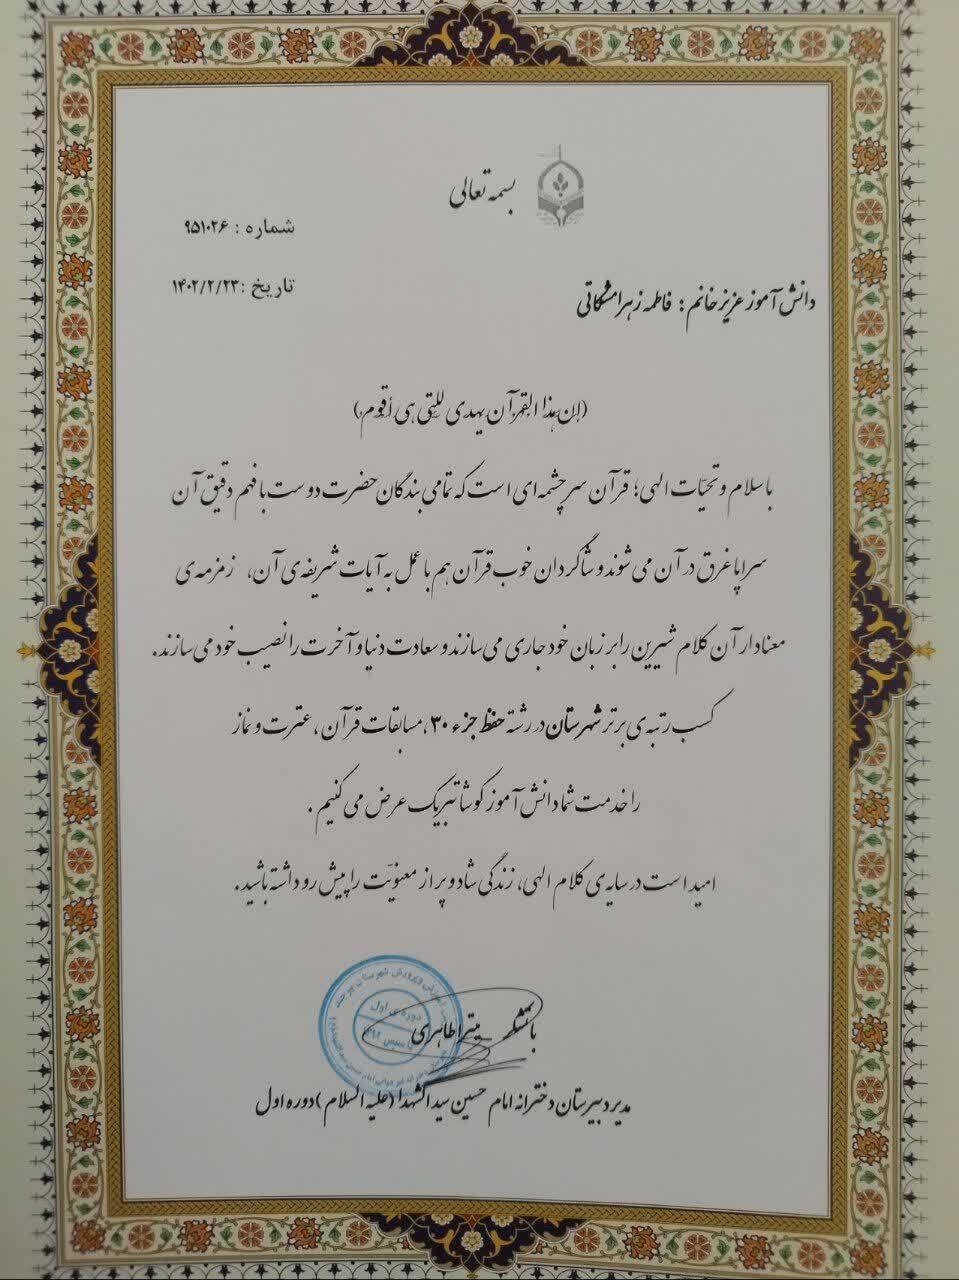 بسمه تعالی
شماره : ۹۵۱۰۲۶
تاریخ :۱۴۰۲/۲/۲۳
دانش آموز عزیز خانم : فاطمه زهرا مشکاتی
(إن هذا القرآن یهدی للتی هی أقوم)
با سلام و تحیّات الهی؛ قرآن سرچشمه ای است که تمامی بندگان حضرت دوست با فهم دقیق آن
سراپا غرق در آن می شوند و شاگردان خوب قرآن هم با عمل به آیات شریفه ی آن، زمزمه ی
معنادار آن کلام شیرین را بر زبان خود جاری می سازند و سعادت دنیا و آخرت را نصیب خود می سازند.
کسب رتبه ی برتر شهرستان در رشته حفظ جزء ۳۰ ،مسابقات قرآن ، عترت و نماز
را خدمت شما دانش آموز کوشا تبریک عرض می کنیم .
امید است در سایه ی کلام الهی، زندگی شاد و پر از معنویّت را پیش رو داشته باشید.
با تشکر _ میترا طاهری
دوره ی اول
مدیر دبیرستان دخترانه امام حسین سیدالشهدا (علیه السلام )دوره اول